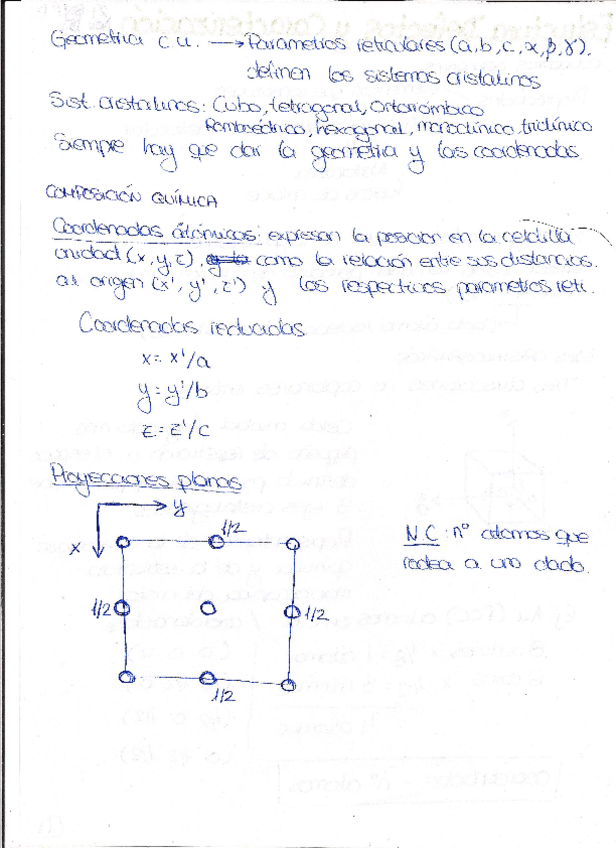 Geometria c.u. → Parametros reticulares (a, b, c, α, β, γ).
definen los sistemas cristalinos
Sist. cristalinos: Cubo, tetragonal, Ortorrómbico
Romboédrico, hexagonal, monoclínico, triclínico
Siempre hay que dar la geometria y las coordenadas
COMPOSICIÓN QUÍMICA
Coordenadas atómicas: expresan la posicion en la celdilla
unidad (x, y, z), como la relación entre sus distancias.
al origen (x', y', z') y los respectivos parametros reti.
Coordenadas reducidas
x = x'/a
y = y'/b
z = z'/c
Proyecciones planas
y
x
1/2
1/2
1/2
1/2
N.C: nº atomos que
rodea a uno dado.